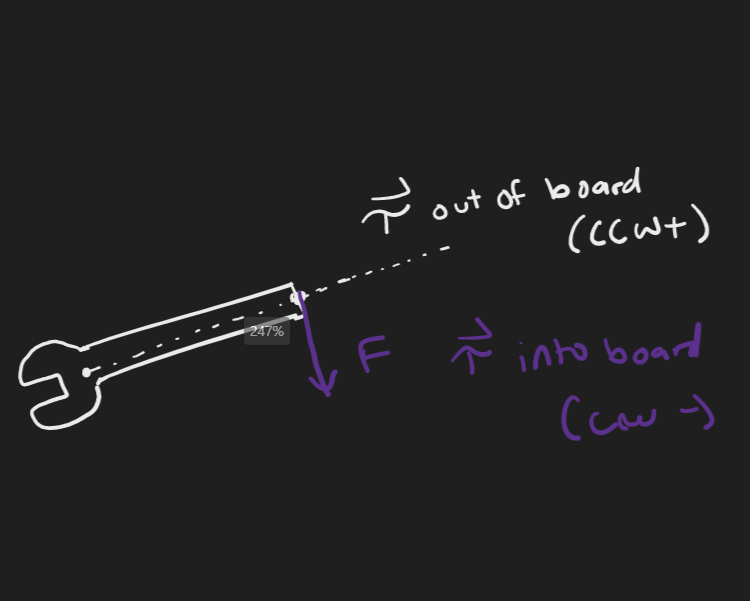 τ⃗ out of board
(CCW+)
247%
F
τ⃗ into board
(CW -)